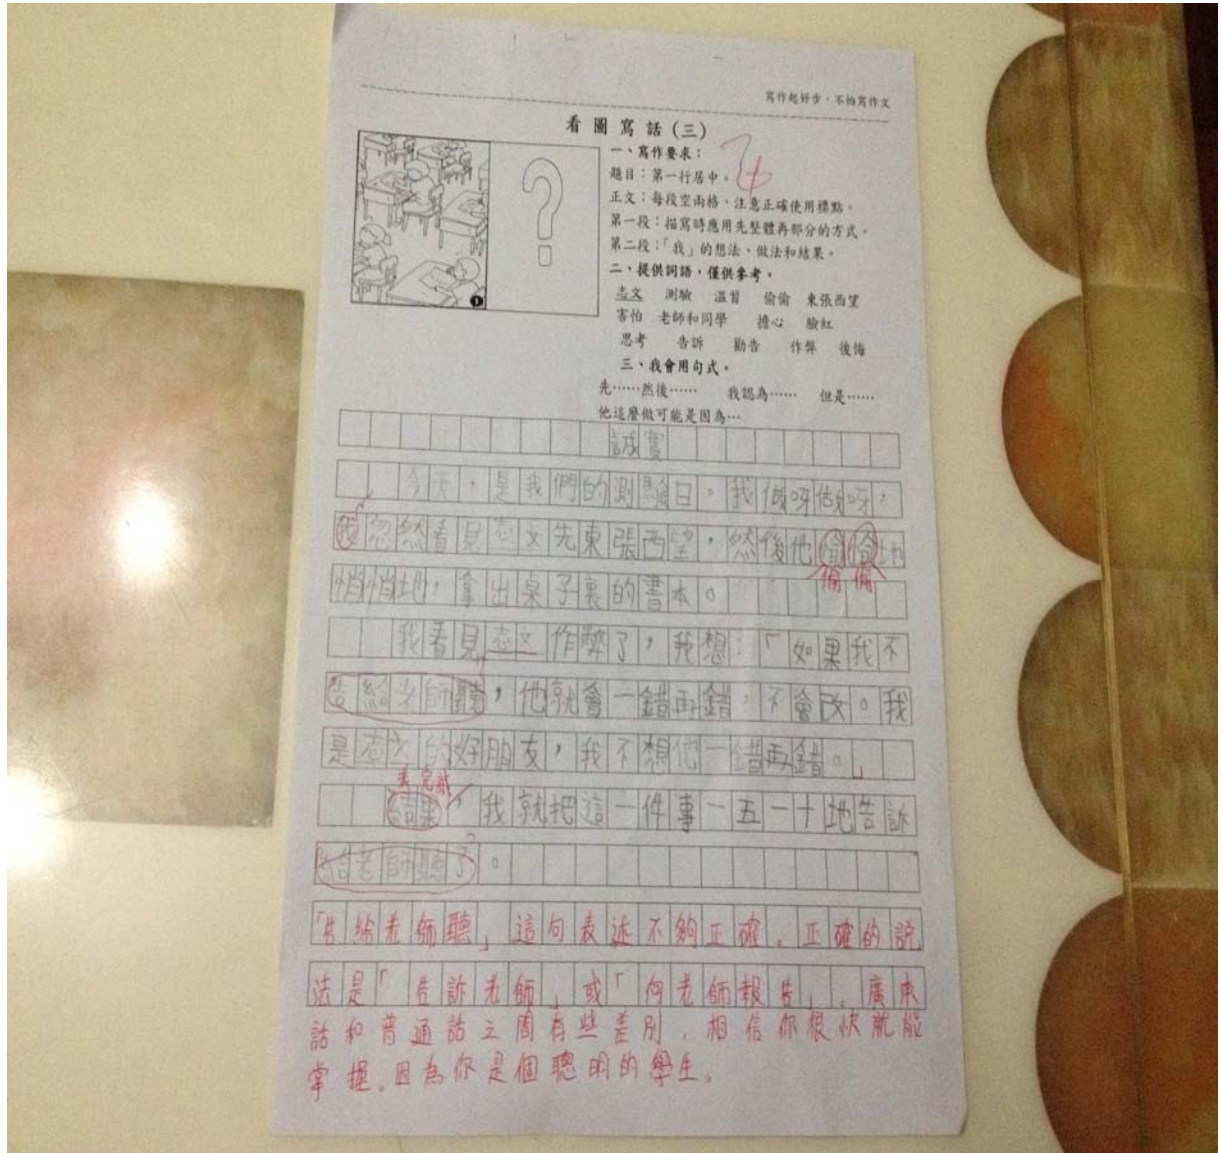 寫作起好步,不怕寫作文
看圖寫話(三)
一、寫作要求:
題目:第一行居中。
正文:每段空兩格,注意正確使用標點。
第一段:描寫時應用先整體再部分的方式。
第二段:「我」的想法、做法和結果。
二、提供詞語,僅供參考。
志文 測驗 溫習 偷偷 東張西望
害怕 老師和同學 擔心 臉紅
思考 告訴 勸告 作弊 後悔
三、我會用句式。
先……然後…… 我認為…… 但是……
他這麼做可能是因為…
1
誠實
今天,是我們的測驗日。我做呀做呀,
我忽然看見志文先東張西望,然後他偷偷地
偷偷
悄悄地,拿出桌子裏的書本。
我看見志文作弊了,我想:「如果我不
告給老師聽,他就會一錯再錯,不會改。我
是志文的好朋友,我不想他一錯再錯。」
結果,我就把這一件事一五一十地告訴
給老師聽了。
「告給老師聽」這句表述不夠正確,正確的說
法是「告訴老師」或「向老師報告」。廣東
話和普通話之間有些差別,相信你很快就能
掌握。因為你是個聰明的學生。